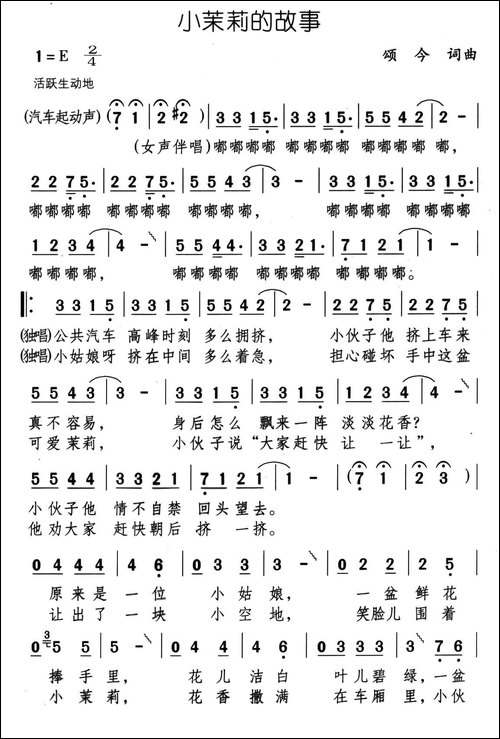 小茉莉的故事
1=E 2/4 颂今 词曲
活跃生动地
(汽车起动声) (7 1 | 2 #2) | 3 3 1 5· | 3 3 1 5· | 5 5 4 2 | 2 - |
(女声伴唱)嘟嘟嘟嘟 嘟嘟嘟嘟 嘟嘟嘟嘟 嘟,
2 2 7 5· | 2 2 7 5· | 5 5 4 3 | 3 - | 3 3 1 5· | 3 3 1 5· |
嘟嘟嘟嘟 嘟嘟嘟嘟 嘟嘟嘟嘟, 嘟嘟嘟嘟 嘟嘟嘟嘟
1 2 3 4 | 4 - | 5 5 4 4· | 3 3 2 1· | 7 1 2 1 | 1 - |
嘟嘟嘟嘟, 嘟嘟嘟嘟 嘟嘟嘟嘟 嘟嘟嘟嘟。
‖: 3 3 1 5 | 3 3 1 5 | 5 5 4 2 | 2 - | 2 2 7 5 | 2 2 7 5 |
(独唱)公共汽车 高峰时刻 多么拥挤, 小伙子他 挤上车来
(独唱)小姑娘呀 挤在中间 多么着急, 担心碰坏 手中这盆
5 5 4 3 | 3 - | 3 3 1 5 | 3 3 1 5 | 1 2 3 4 | 4 - |
真不容易, 身后怎么 飘来一阵 淡淡花香?
可爱茉莉, 小伙子说“大家赶快 让 一让”,
5 5 4 4 | 3 3 2 1 | 7 1 2 1 | 1 - | (7 1 | 2 3) |
小伙子他 情不自禁 回头望去。
他劝大家 赶快朝后 挤 一挤。
0 4 4 4 | 4 6 | 0 3 3 | 3 - | 0 2 2 | 2 5 |
原来是 一位 小姑娘, 一盆鲜花
让出了 一块 小空地, 笑脸儿围着
0 5 5 | 5 - | 0 3 3 | 3 6 | 0 3 3 3 | 3 7 6 |
捧手里, 花儿洁白 叶儿碧绿,一盆
小茉莉, 花香撒满 在车厢里,小伙